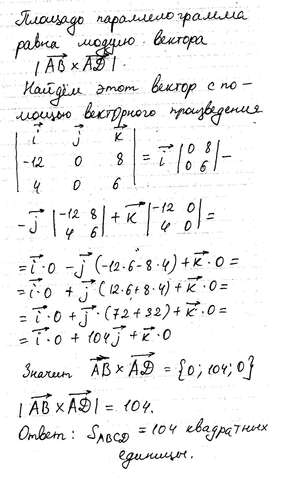 Площадь параллелограмма
равна модулю вектора
|AB⃗ × AD⃗|.
Найдём этот вектор с по-
мощью векторного произведения
| i⃗ j⃗ k⃗ |
| -12 0 8 | = i⃗ |0 8; 0 6| -
| 4 0 6 |
- j⃗ |-12 8; 4 6| + k⃗ |-12 0; 4 0| =
= i⃗·0 - j⃗ (-12·6-8·4) + k⃗·0 =
= i⃗·0 + j⃗ (12·6+8·4) + k⃗·0 =
= i⃗·0 + j⃗·(72+32) + k⃗·0 =
= i⃗·0 + 104j⃗ + k⃗·0
Значит AB⃗ × AD⃗ = {0; 104; 0}
|AB⃗ × AD⃗| = 104.
Ответ: S_ABCD = 104 квадратных
единицы.